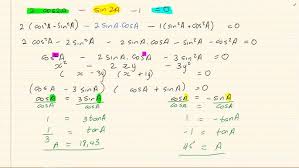 2 cos2A - sin2A - 1 = 0
2 (cos²A - sin²A) - 2sinA.cosA - 1(sin²A + cos²A) = 0
2cos²A - 2sin²A - 2 sinA.cosA - sin²A - cos²A = 0
cos²A - 2 sinA.cosA - 3 sin²A = 0
x² - 2xy - 3y²
(x - 3y) (x + y) = 0
(cosA - 3sinA) (cosA + sinA) = 0
cosA/cosA = 3sinA/cosA cosA/cosA = -sinA/cosA
1 = 3tanA 1 = -tanA
1/3 = tanA -1 = tanA
A = 18,43 45° = A